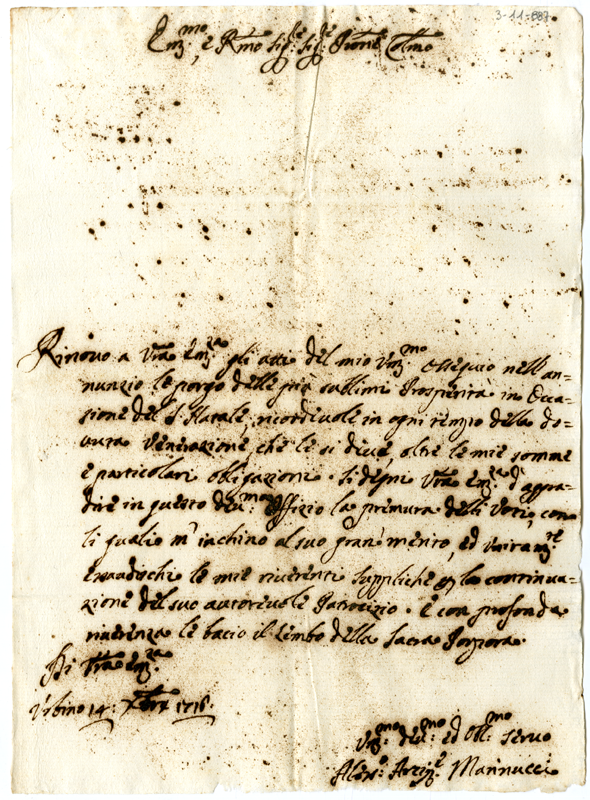 3-11-887
Em:mo, e Rmo Sig:re Sig:re Prone Colmo
Rinovo a Vra Em:za gli atti del mio Um:mo ossequio nell'an=
nunzio le porgo delle più sublimi Prosperità in Occa=
sione del S. Natale, ricordevole in ogni tempo della do=
vuta Venerazione, che le si deve, oltre le mie somme
e particolari obligazioni. Si degni Vra Em:za d'aggra=
dire in questo dev:mo Offizio la premura delli Voti, con
li quali m'inchino al suo gran merito, ed
le mie riverenti suppliche la continua=
zione del suo autorevole Patrocizio. E con profonda
riverenza le bacio il Limbo della Sacra Porpora.
Di Vra Em:za
Urbino 14: Xbre 1716.
Um:mo dev:mo ed Obl:mo Servo
Mannucci